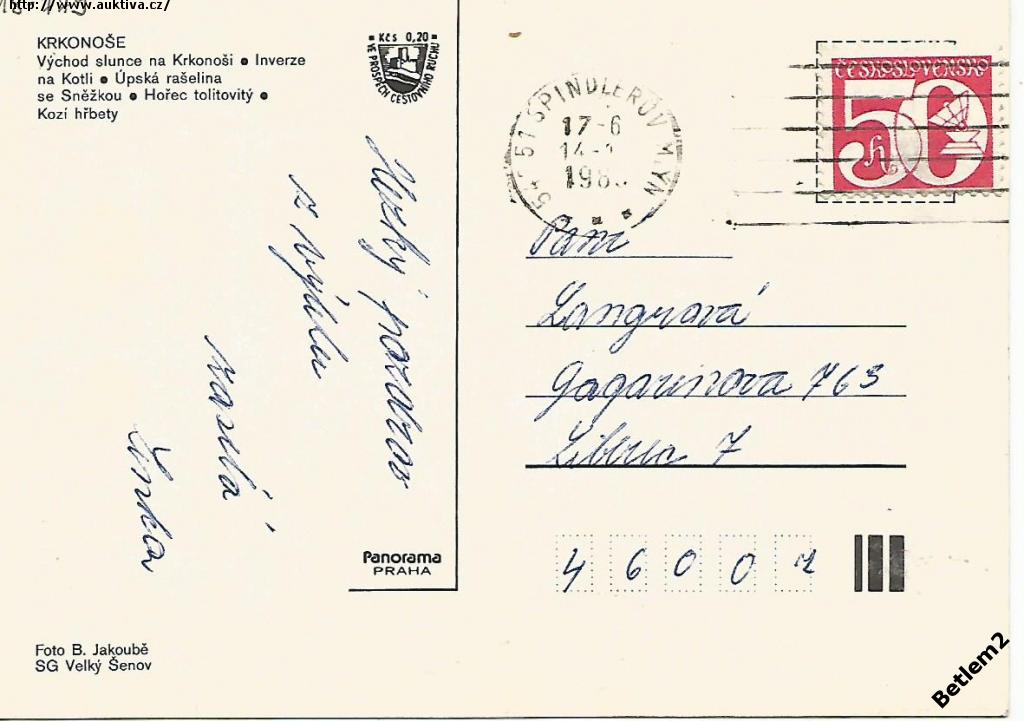 http://www.auktiva.cz/
KRKONOŠE
Východ slunce na Krkonoši ● Inverze
na Kotli ● Úpská rašelina
se Sněžkou ● Hořec tolitovitý ●
Kozí hřbety
Kčs 0,20
VE PROSPĚCH CESTOVNÍHO RUCHU
Hezký pozdrav
z výletu
zasílá
Lenka
Panorama
PRAHA
Foto B. Jakoubě
SG Velký Šenov
51 ŠPINDLERŮV MLÝN
17-6
14
ČESKOSLOVENSKO
50 h
Paní
Langrová
Gagarinova 763
Liberec 7
4 6 0 0 7
Betlem2